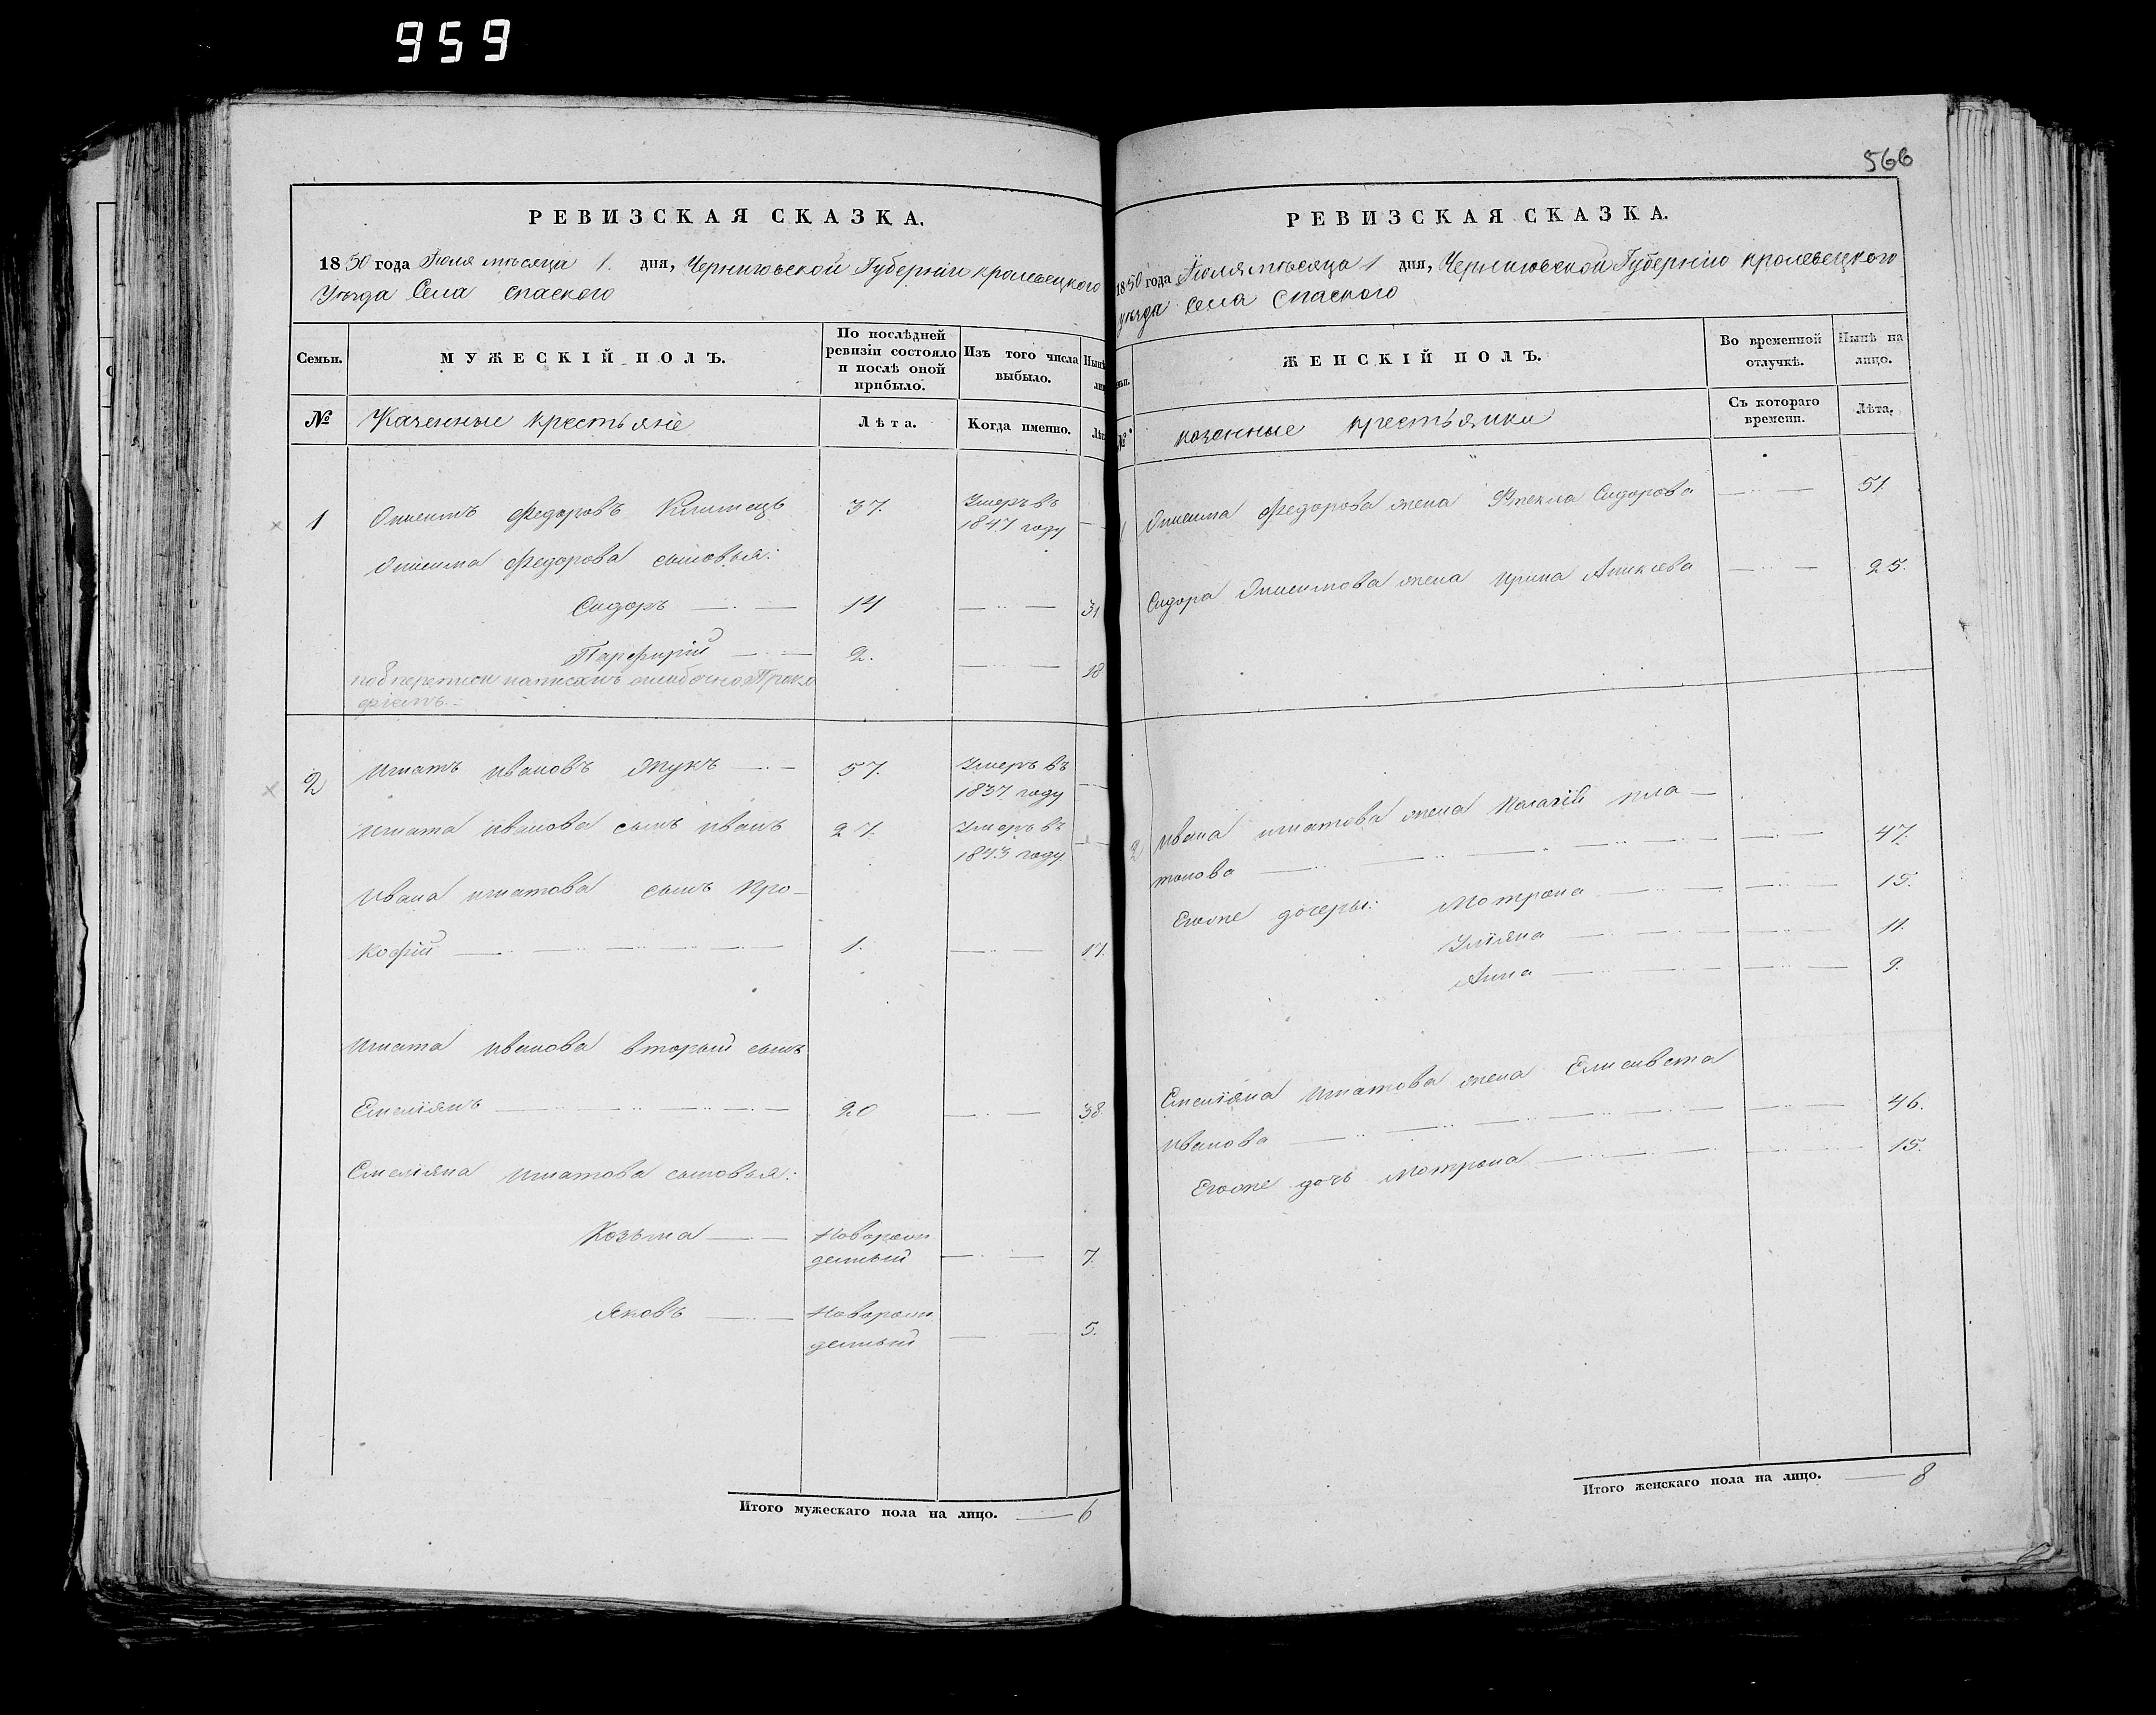 959
566
РЕВИЗСКАЯ СКАЗКА.
1850 года Іюля мѣсяца 1. дня, Черниговской Губерніи кролевецкого
Уѣзда Села Спаского
Семьи. МУЖЕСКІЙ ПОЛЪ. По послѣдней ревизіи состояло и послѣ оной прибыло. Изъ того числа выбыло. Нынѣ
№ Казенные крестьяне Лѣта. Когда именно. Лѣт
1 Онисимъ Федоровъ 37. Умеръ въ
1847 году
Онисима Федорова сыновья:
Сидоръ 14 31
Парфирій 2. 18
по 8 переписи написанъ ошибочно Проко
фіемъ.
2 Игнатъ Ивановъ Жукъ 57. Умеръ въ
1837 году
Игната Иванова сынъ Иванъ 27. Умеръ въ
1843 году.
Ивана Игнатова сынъ Про-
кофій 1. 17.
Игната Иванова вторый сынъ
Емеліянъ 20 38.
Емеліяна Игнатова сыновья:
Козьма Новорож
денный 7.
Яковъ Новорож
денный 5.
Итого мужескаго пола на лицо. 6
РЕВИЗСКАЯ СКАЗКА.
1850 года Іюля мѣсяца 1 дня, Черниговской Губерніи кролевецкого
уѣзда Села Спаского
ЖЕНСКІЙ ПОЛЪ. Во временной отлучкѣ. Нынѣ на лицо.
№ казенные крестьянки Съ котораго времени. Лѣта.
1 Онисима Федорова жена Фтекла Сидорова 51.
Сидора Онисимова жена Ирина 25.
2 Ивана Игнатова жена Палагія Пла-
тонова 47.
Егоже дочеры: Мотрона 15.
Уліяна 11.
Анна 9.
Емеліяна Игнатова жена Елисавета
Иванова 46.
Егоже дочь Мотрона 15.
Итого женскаго пола на лицо. 8